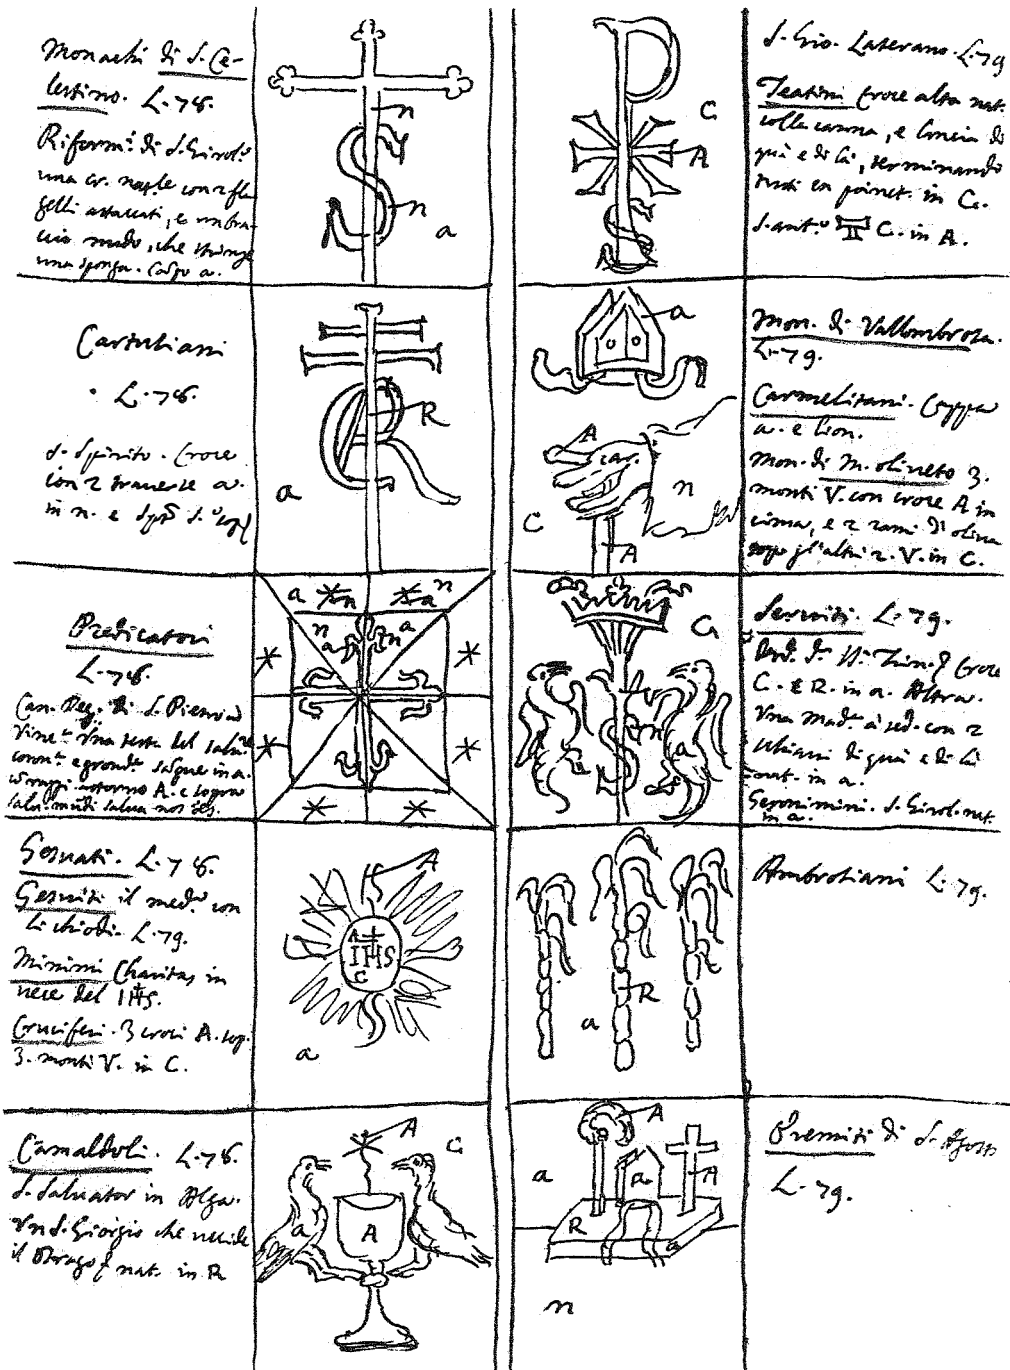 Monachi di S. Ce-
lestino. L. 78.
Riform.ⁱ di S. Girol.º
una cr. nat.le con 2 fla
gelli attaccati, e un bra-
cio nudo, che stringe
una sponga. Campo a.
n
n
a
Cartusiani
L. 78.
S. Spirito. Croce
con 2 traverse a.
in n. e
R
a
Predicatori
L. 78.
Can. Reg. di S. Pietro in
Vinc.ª Una testa del Salu.ʳᵉ
coron.ª e grond.ᵉ sangue in a.
con raggi attorno A. e sopra
Salu. mundi salua nos
a n a n
n a n a
Gesuati. L. 78.
Gesuiti il med.º con
li chiodi. L. 79.
Minimi Charitas in
vece del IHS.
Cruciferi. 3 croci A. sop.
3. monti V. in C.
A
A
IHS
C
a
Camaldoli. L. 78.
S. Salvator in Alga.
Un S. Giorgio che uccide
il Drago nat. in R
A
C
a
A
C
A
S. Gio. Laterano. L. 79
Teatini Croce alta nat.
colla corona, e lancia di
quà e di là, terminando
tutti in C.
S. Ant.º C. in A.
a
A
car.
n
C
A
Mon. di Vallombrosa.
L. 79.
Carmelitani. Cappa
a. e lion.
Mon. di M. Oliveto 3.
monti V. con croce A in
cima, e 2 rami di oliva
sop. gl'altri 2. V. in C.
C
n
a
Serviti. L. 79.
Croce
C. e R. in a. Altra.
Una Mad.ª à sed. con 2
schiavi di quà e di là
nat. in a.
Geronimini. S. Girol. nat.
in a.
R
a
Ambrosiani L. 79.
A
a
a
A
R
a
n
Eremiti di S. Agost.
L. 79.